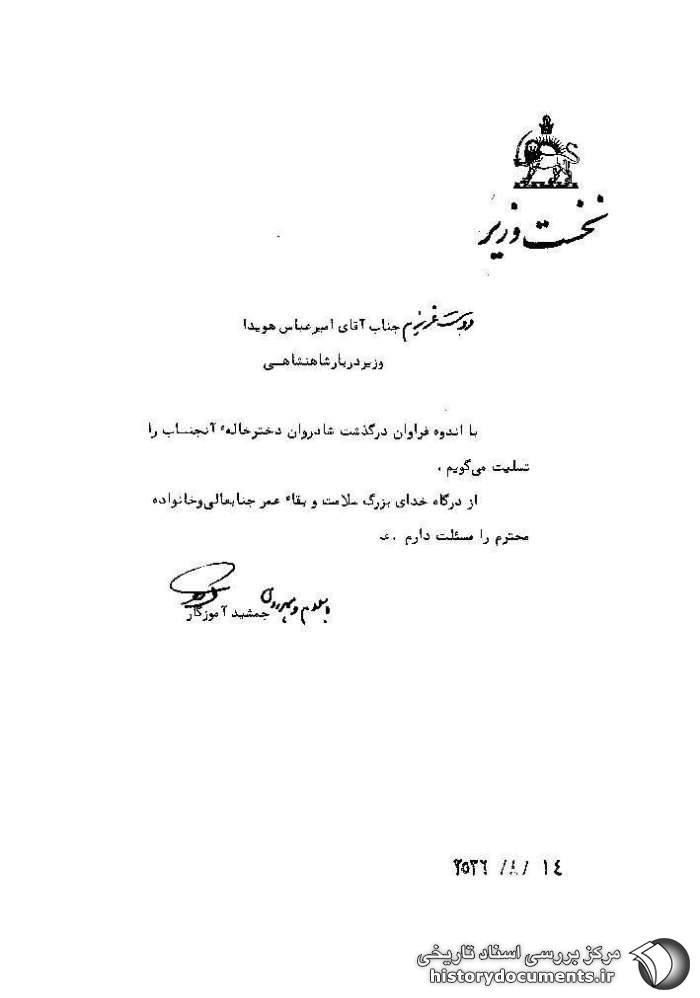 نخست وزیر
دوست عزیزم جناب آقای امیرعباس هویدا
وزیر دربار شاهنشاهی
با اندوه فراوان درگذشت شادروان دخترخالهٔ آنجناب را
تسلیت می‌گویم .
از درگاه خدای بزرگ سلامت و بقاء عمر جنابعالی و خانواده
محترم را مسئلت دارم .
جمشید آموزگار
١٤ / / ٢٥٣٦
مرکز بررسی اسناد تاریخی
historydocuments.ir